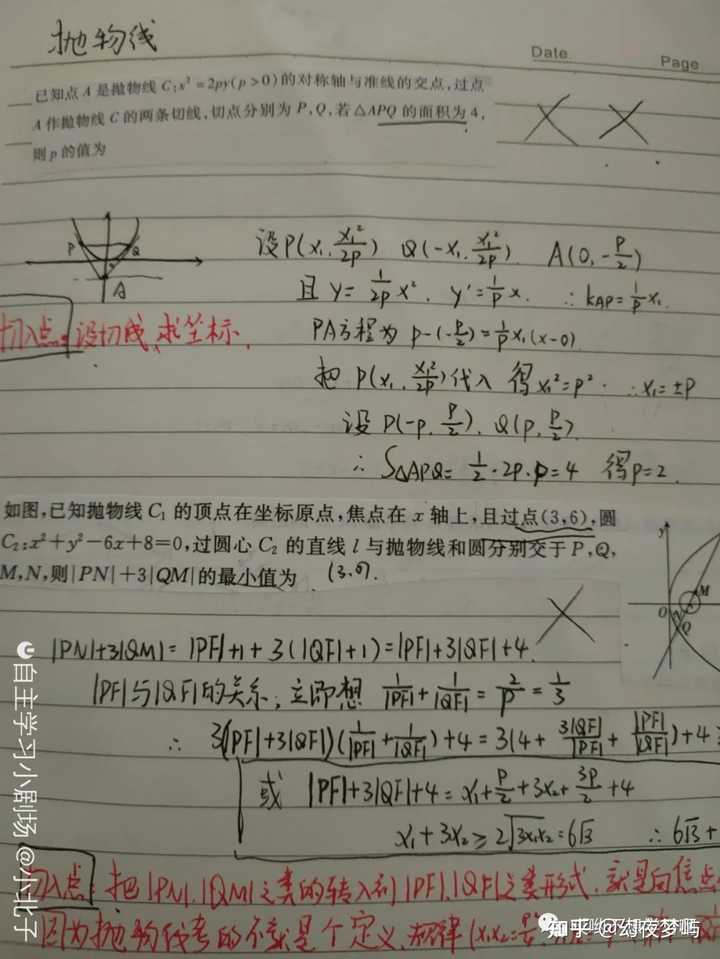 抛物线
Date.
Page
已知点 A 是抛物线 C:x²=2py(p>0)的对称轴与准线的交点,过点
A 作抛物线 C 的两条切线,切点分别为 P,Q,若△APQ 的面积为 4,
则 p 的值为
设P(x₁, x₁²/2p) Q(-x₁, x₁²/2p). A(0,-p/2)
P Q A
且 y=1/2p x². y'=1/p x. ∴ kAP=1/p x₁.
切入点:设切线,求坐标.
PA方程为 p-(-p/2)=1/p x₁(x-0)
把 P(x₁, x₁²/2p)代入 得x₁²=p². ∴x₁=±p
设 P(-p, p/2). Q(p, p/2).
∴ S△APQ=1/2·2p·p=4 得p=2.
如图,已知抛物线 C₁ 的顶点在坐标原点,焦点在 x 轴上,且过点(3,6),圆
C₂:x²+y²-6x+8=0,过圆心 C₂ 的直线 l 与抛物线和圆分别交于 P,Q,
M,N,则|PN|+3|QM|的最小值为 (3,0).
y O M Q
|PN|+3|QM|=|PF|+1+3(|QF|+1)=|PF|+3|QF|+4.
|PF|与|QF|的关系,立即想 1/|PF|+1/|QF|=2/p=1/3
∴ 3(|PF|+3|QF|)(1/|PF|+1/|QF|)+4=3(4+3|QF|/|PF|+|PF|/|QF|)+4
或 |PF|+3|QF|+4=x₁+p/2+3x₂+3p/2+4
x₁+3x₂≥2√3x₁x₂=6√3 ∴6√3+
切入点:把|PN|,|QM|之类的转入到|PF|,|QF|之类形式,就是向焦点
因为抛物线考的不就是个定义,规律(x₁x₂=
自主学习小剧场@小北子
知乎 @幻夜梦屿